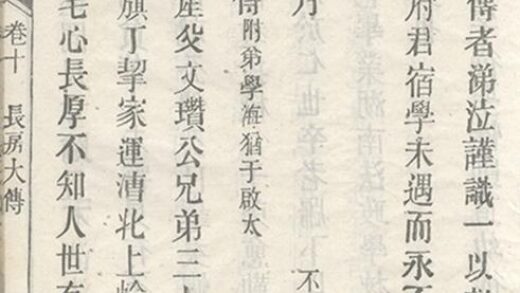 傳者涕泣謹識一以
府君宿學未遇而永不
不
傳附弟學海猶于啟太
產父文瓚公兄弟三
旗丁挈家運漕北上
宅心長厚不知人世有
卷十 長房大傳